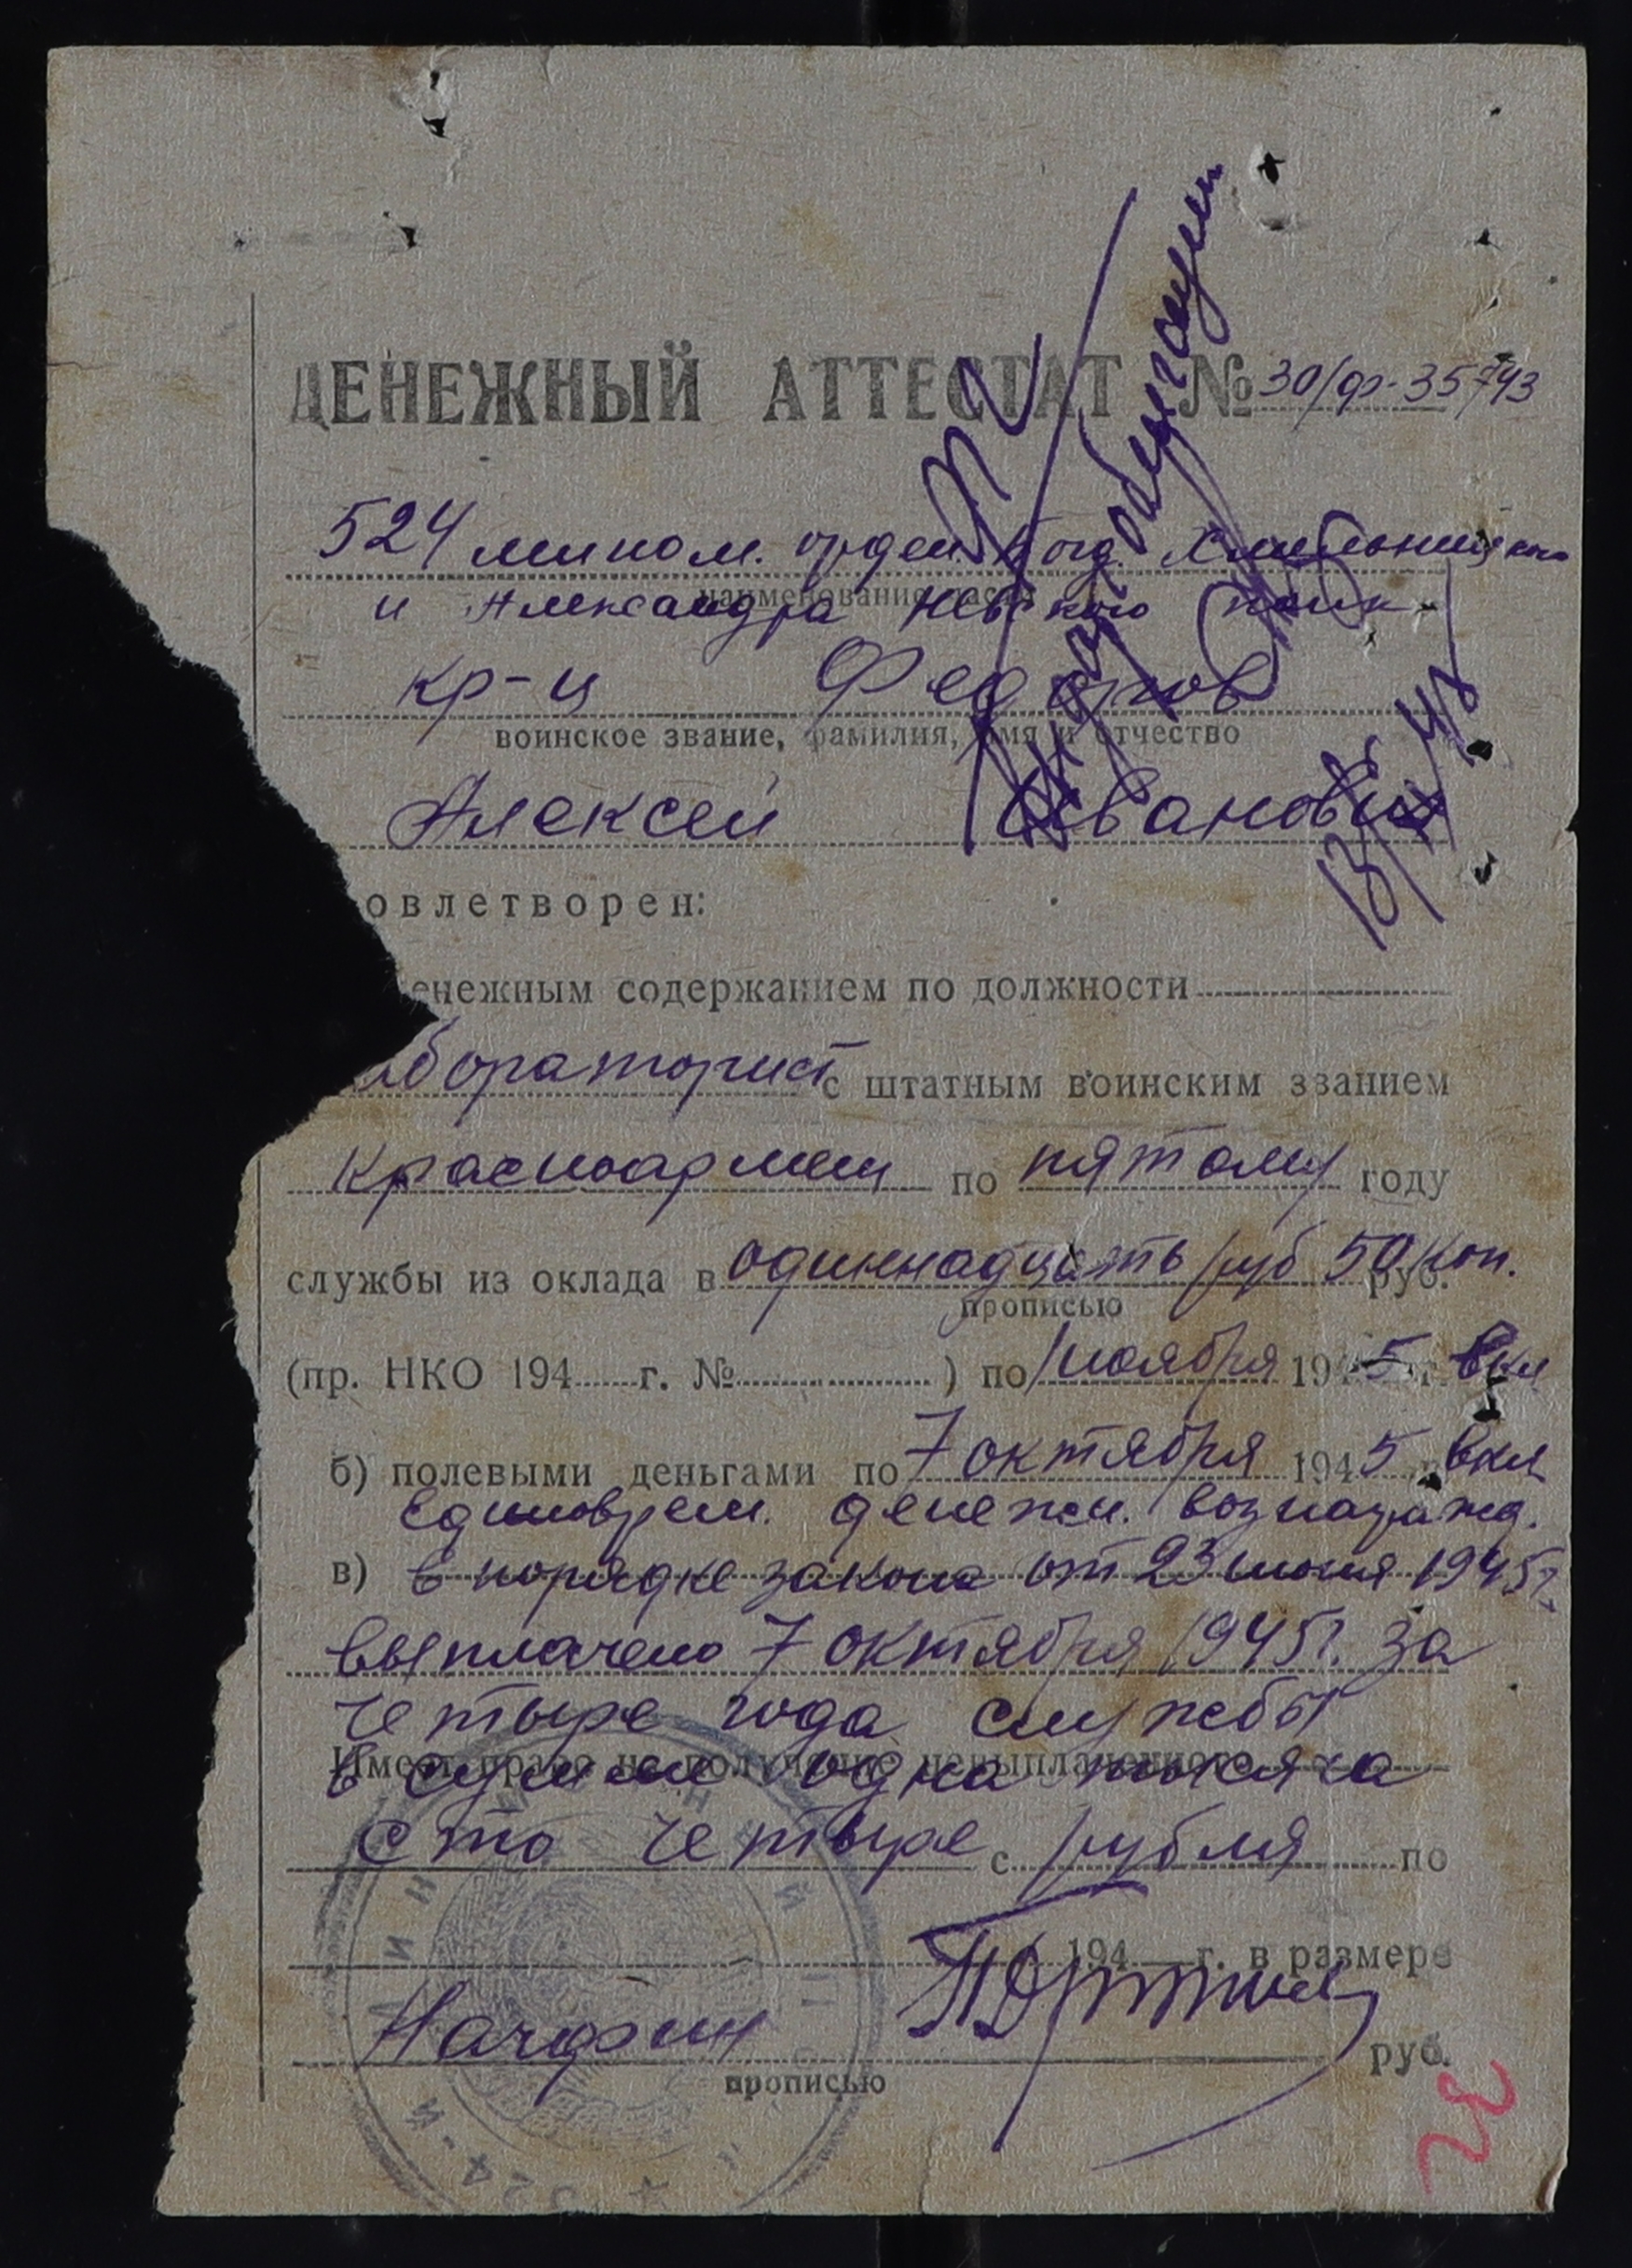 ДЕНЕЖНЫЙ АТТЕСТАТ № 30/ф-35743
524 мином. орден. Богд. Хмельницкого
наименование части
и Александра Невского полк
кр-ц Федоров
воинское звание, фамилия, имя и отчество
Алексей Иванович
овлетворен:
енежным содержанием по должности
абораторист с штатным воинским званием
красноармеец по пятому году
службы из оклада в одиннадцать руб 50 коп. руб.
прописью
(пр. НКО 194 г. № ) по 1 ноября 1945 г. вкл
б) полевыми деньгами по 7 октября 1945 г. вкл
единоврем. денежн. вознагражд.
в) в порядке закона от 23 июня 1945 г.
выплачено 7 октября 1945 г. за
четыре года службы
Имеет право на получение невыплаченного
в сумме одна тысяча
сто четыре с рубля по
194 г. в размере
Начфин
руб.
прописью
524-Й